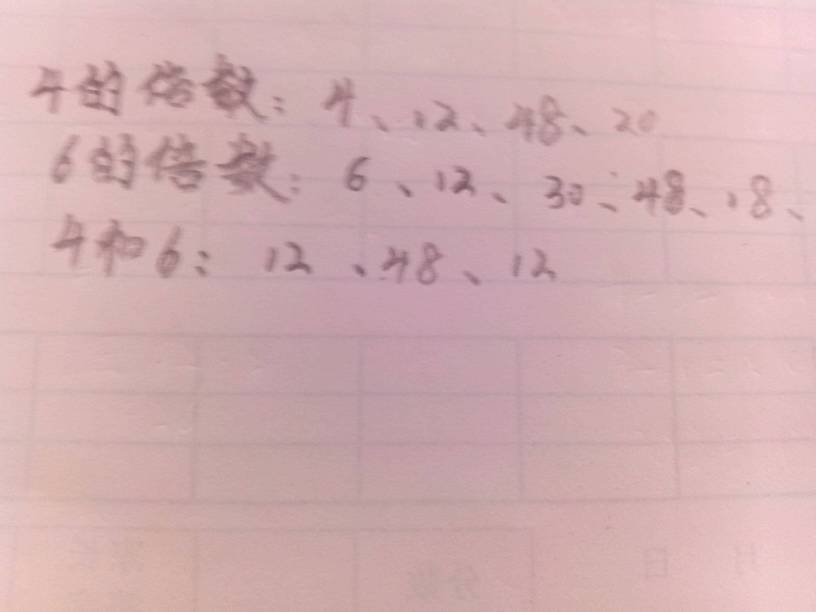 4的倍数: 4、12、48、20
6的倍数: 6、12、30、48、18、
4和6: 12、48、12